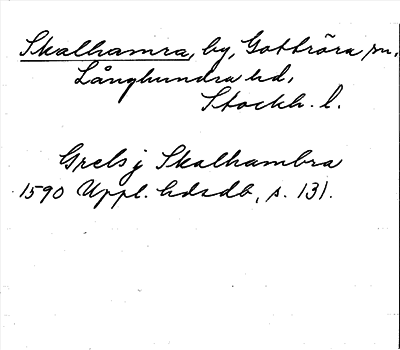 Skalhamra, by, Gottröra sn,
Långhundra hd,
Stockh. l.
Grels j Skalhambra
1590 Uppl. hdsdb, s. 131.